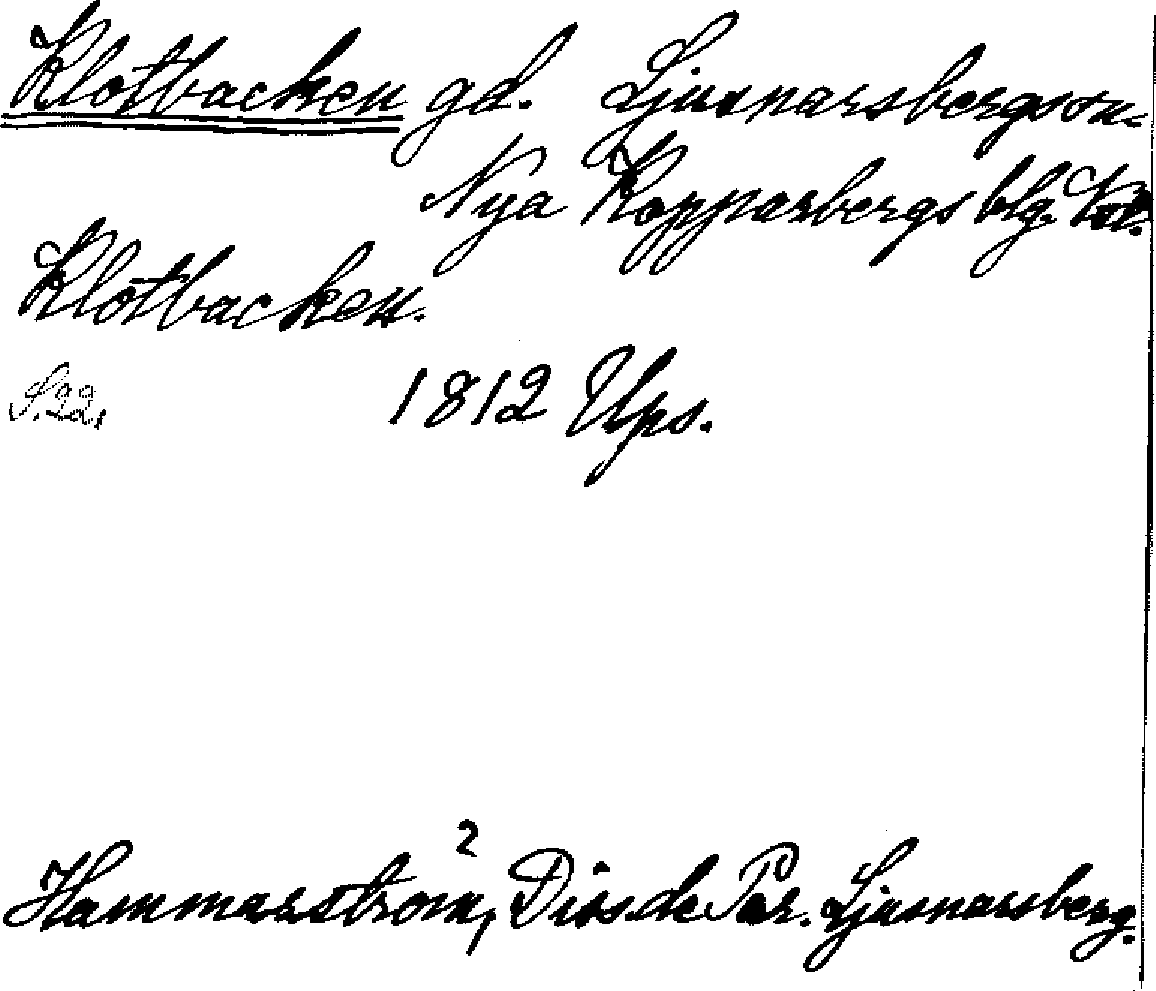 Klotbacken gd. Ljusnarsbergs sn.
Nya Kopparbergs blg.
Klotbacken.
S. 22, 1812 Ups.
Hammarstrom,² Diss. de Par. Ljusnarsberg.